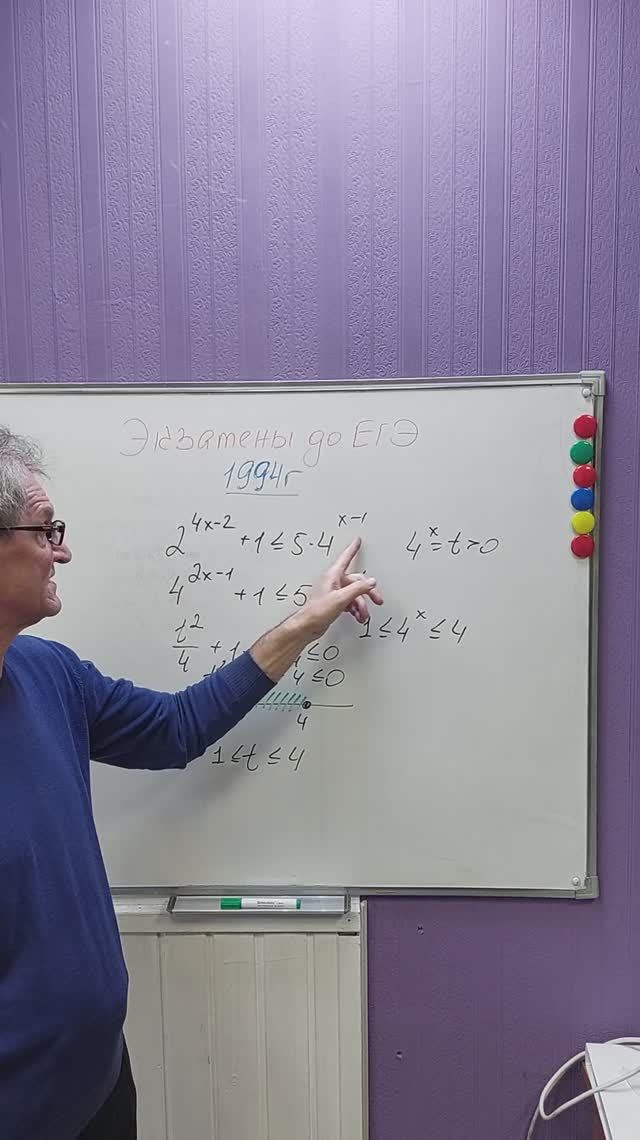 Экзамены до ЕГЭ
1994г
2^{4x-2} + 1 ≤ 5 · 4^{x-1}
4^x = t > 0
4^{2x-1} + 1 ≤ 5
t^2/4 + 1 ≤ 0
1 ≤ 4^x ≤ 4
4 ≤ 0
4
1 ≤ t ≤ 4